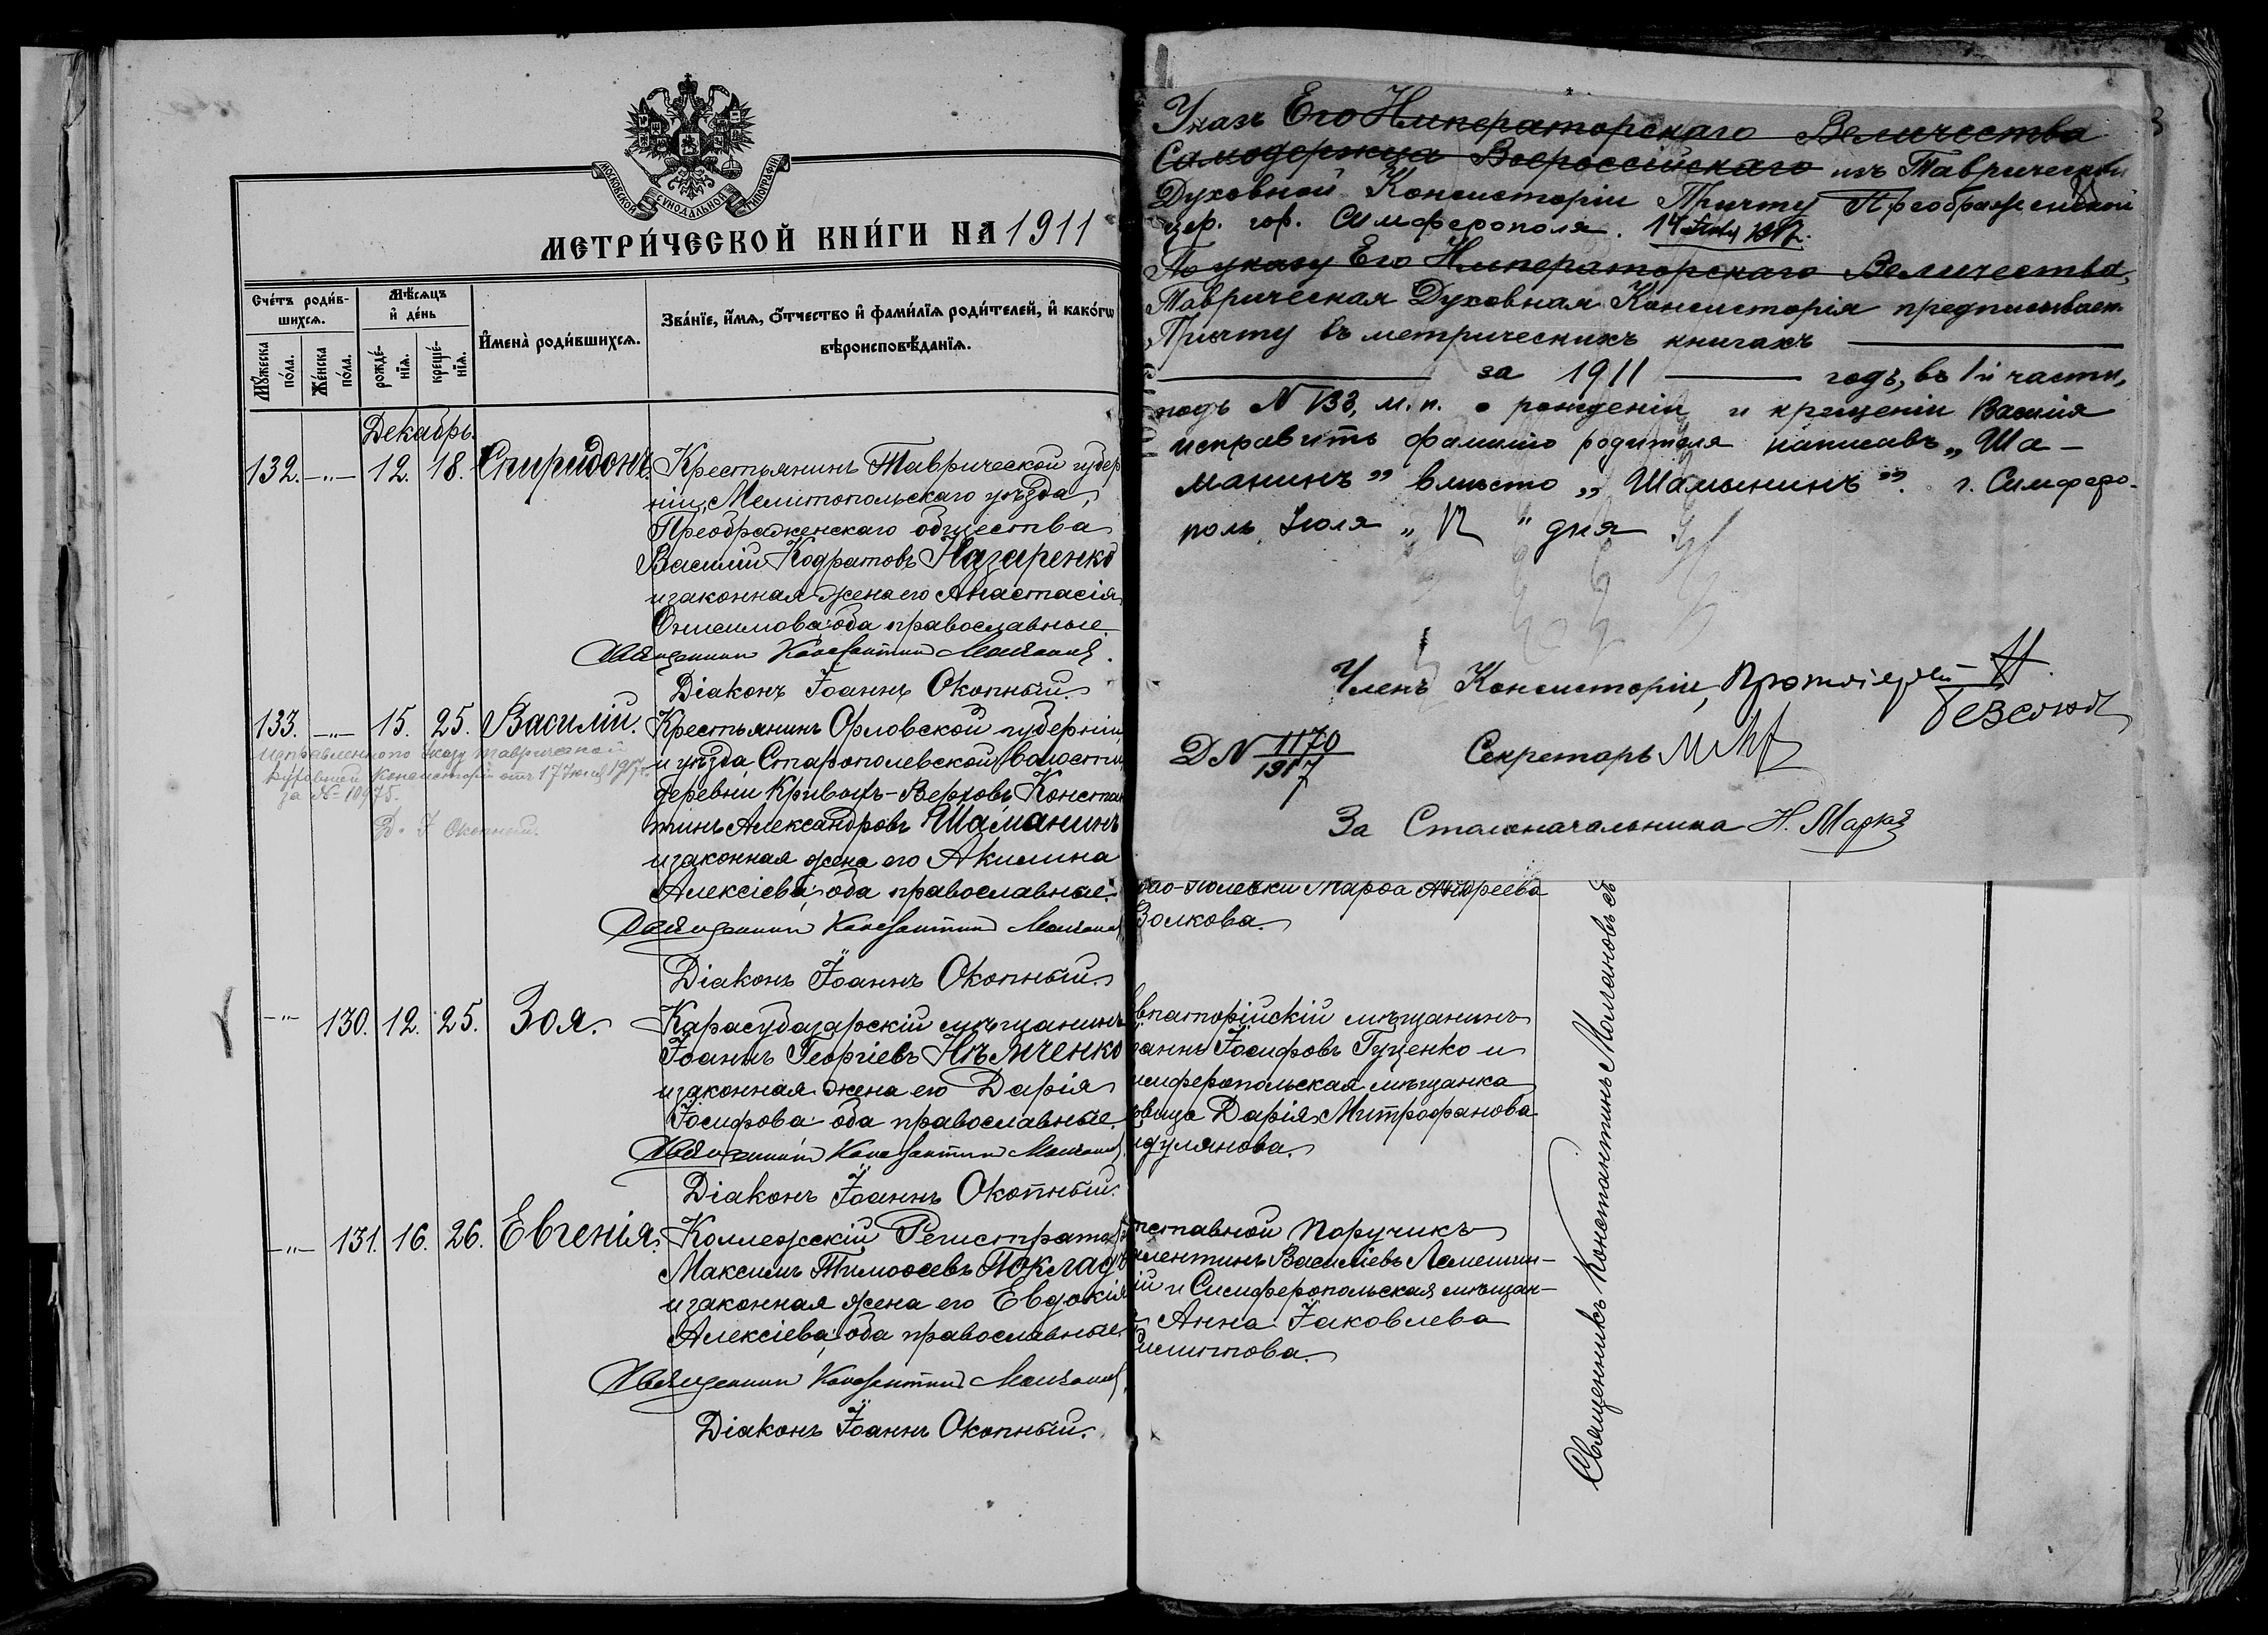 МОСКОВСКОЙ СУНОДАЛЬНОЙ ТИПОГРАФІИ
МЕТРИ́ЧЕСКОЙ КНИ́ГИ НА 1911
Сче́тъ роди́в-
шихсѧ.
Мѣ́сѧцъ
и҆ де́нь
И҆мена̀ роди́вшихсѧ.
Зва́нїе, и҆́мѧ, ѻ҆́тчество и҆ фами́лїѧ роди́телей, и҆ како́гѡ
вѣроисповѣ́данїѧ.
Мꙋ́жеска
по́ла.
Же́нска
по́ла.
рожде́-
нїѧ.
креще́-
нїѧ.
Декабрь.
132. —"— 12. 18. Спиридонъ. Крестьянинъ Таврической губер
ніи, Мелитопольскаго уѣзда,
Преображенскаго общества
Василій Кодратовъ Назаренко
и законная жена его Анастасія
Онисимова; оба православные.
Священникъ Константинъ Молчановъ.
Діаконъ Іоаннъ Окопный.
133. —"— 15. 25. Василій. Крестьянинъ Орловской губерніи
и уѣзда, Старополевской волости,
деревни Кривыхъ-Верховъ, Констан
тинъ Александровъ Шаманинъ
и законная жена его Акилина
Алексіева; оба православные.
Исправлено по указу Таврической
Духовной Консисторіи отъ 17 Іюля 1917 г.
за № 10975.
Д. І. Окопный.
Священникъ Константинъ Молчановъ
Діаконъ Іоаннъ Окопный.
—"— 130. 12. 25. Зоя. Карасубазарскій мѣщанинъ
Іоаннъ Георгіевъ Нѣмченко
и законная жена его Дарія
Іосифова; оба православные.
Священникъ Константинъ Молчановъ
Діаконъ Іоаннъ Окопный.
—"— 131. 16. 26. Евгенія. Коллежскій Регистраторъ
Максимъ Тимоѳеевъ Покладъ
и законная жена его Евдокія
Алексіева; оба православные.
Священникъ Константинъ Молчановъ
Діаконъ Іоаннъ Окопный.
Указъ Его Императорскаго Величества
Самодержца Всероссійскаго изъ Таврической
Духовной Консисторіи Причту Преображенской
цер. гор. Симферополя. 14 1917 г.
По указу Его Императорскаго Величества,
Таврическая Духовная Консисторія предписываетъ
Причту въ метрическихъ книгахъ
за 1911 годъ, въ 1й части,
подъ № 133, м. п. о рожденіи и крещеніи Василія
исправить фамилію родителя написавъ „Ша-
манинъ" вмѣсто „Шамынинъ". г. Симферо-
поль, Іюля „12" дня
Членъ Консисторіи, Протоіерей
Д № 1170
1917
Секретарь
За Столоначальника Н.
Марѳа Андреева
Волкова.
впаторійскій мѣщанинъ
аннъ Іосифовъ Гуценко и
имферопольская мѣщанка
вица Дарія Митрофанова
дулянова.
тставной Поручикъ
алентинъ Василіевъ Лемешин-
ій и Симферопольская мѣщан-
Анна Іаковлева
Священникъ Константинъ Молчановъ